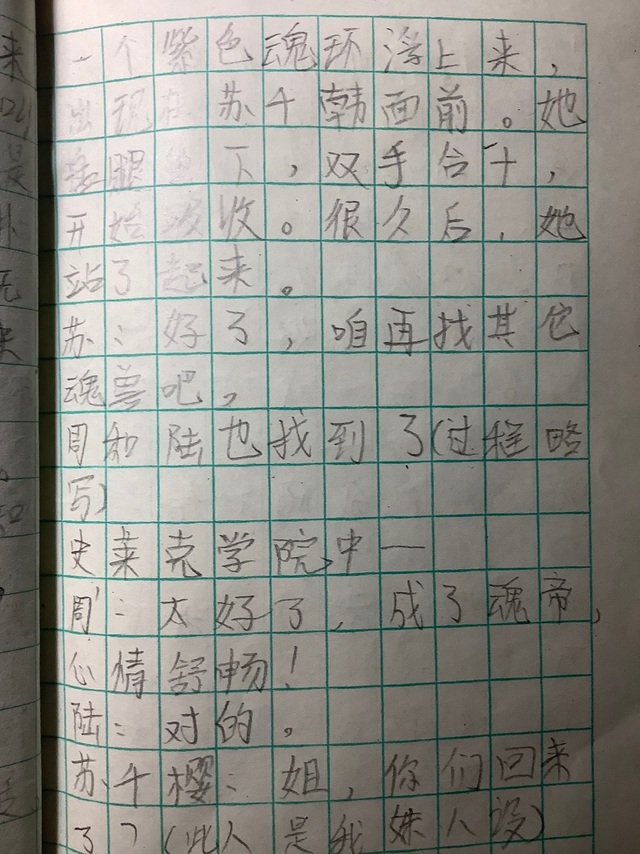 一个紫色魂环浮上来，
出现在苏千韩面前。她
盘腿坐下，双手合十，
开始吸收。很久后，她
站了起来。
苏：好了，咱再找其它
魂兽吧，
周和陆也找到了(过程略
写)
史莱克学院中一
周：太好了，成了魂帝，
心情舒畅！
陆：对的。
苏千樱：姐，你们回来
了？(此人是我妹人设)